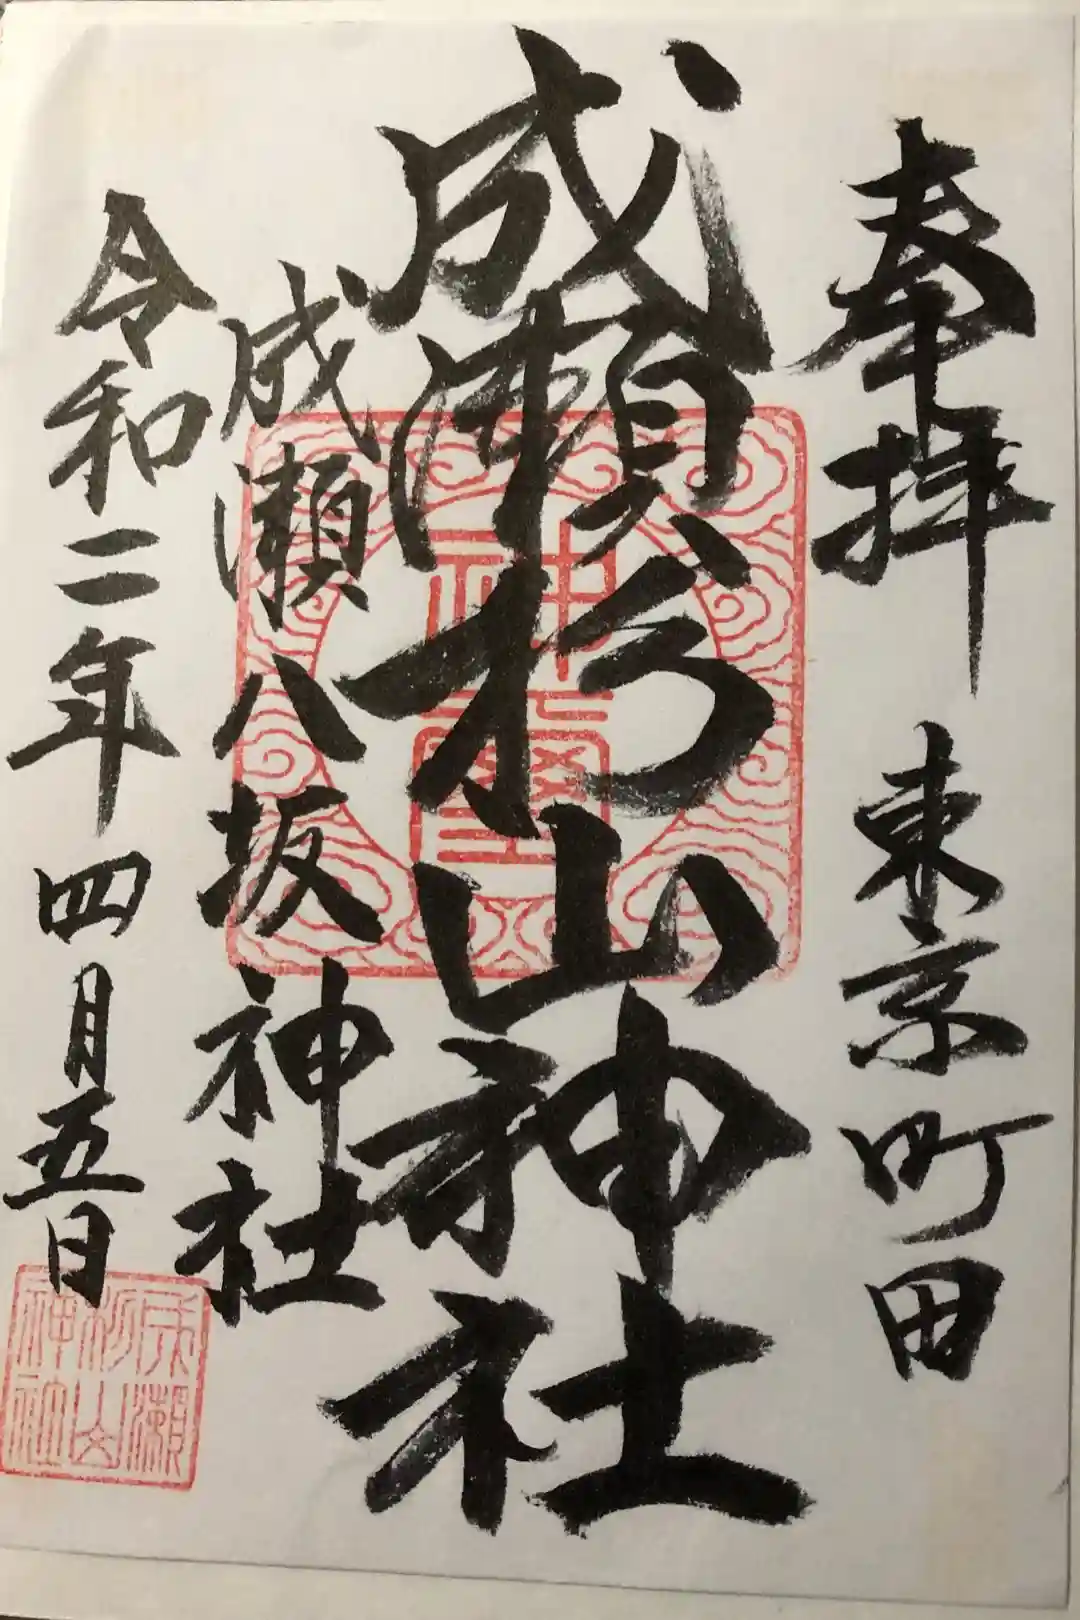 奉拝 東京町田
成瀬杉山神社
成瀬八坂神社
令和二年四月五日
神璽
成瀬
杉山
神社